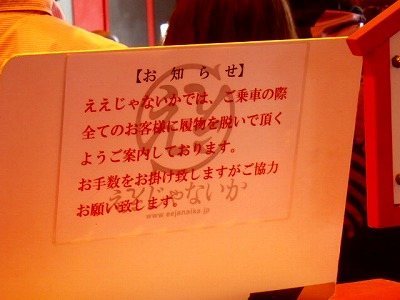 【お知らせ】
ええじゃないかでは、ご乗車の際
全てのお客様に履物を脱いで頂く
ようご案内しております。
お手数をお掛け致しますがご協力
お願い致します。
ええじゃないか
www.eejanaika.jp